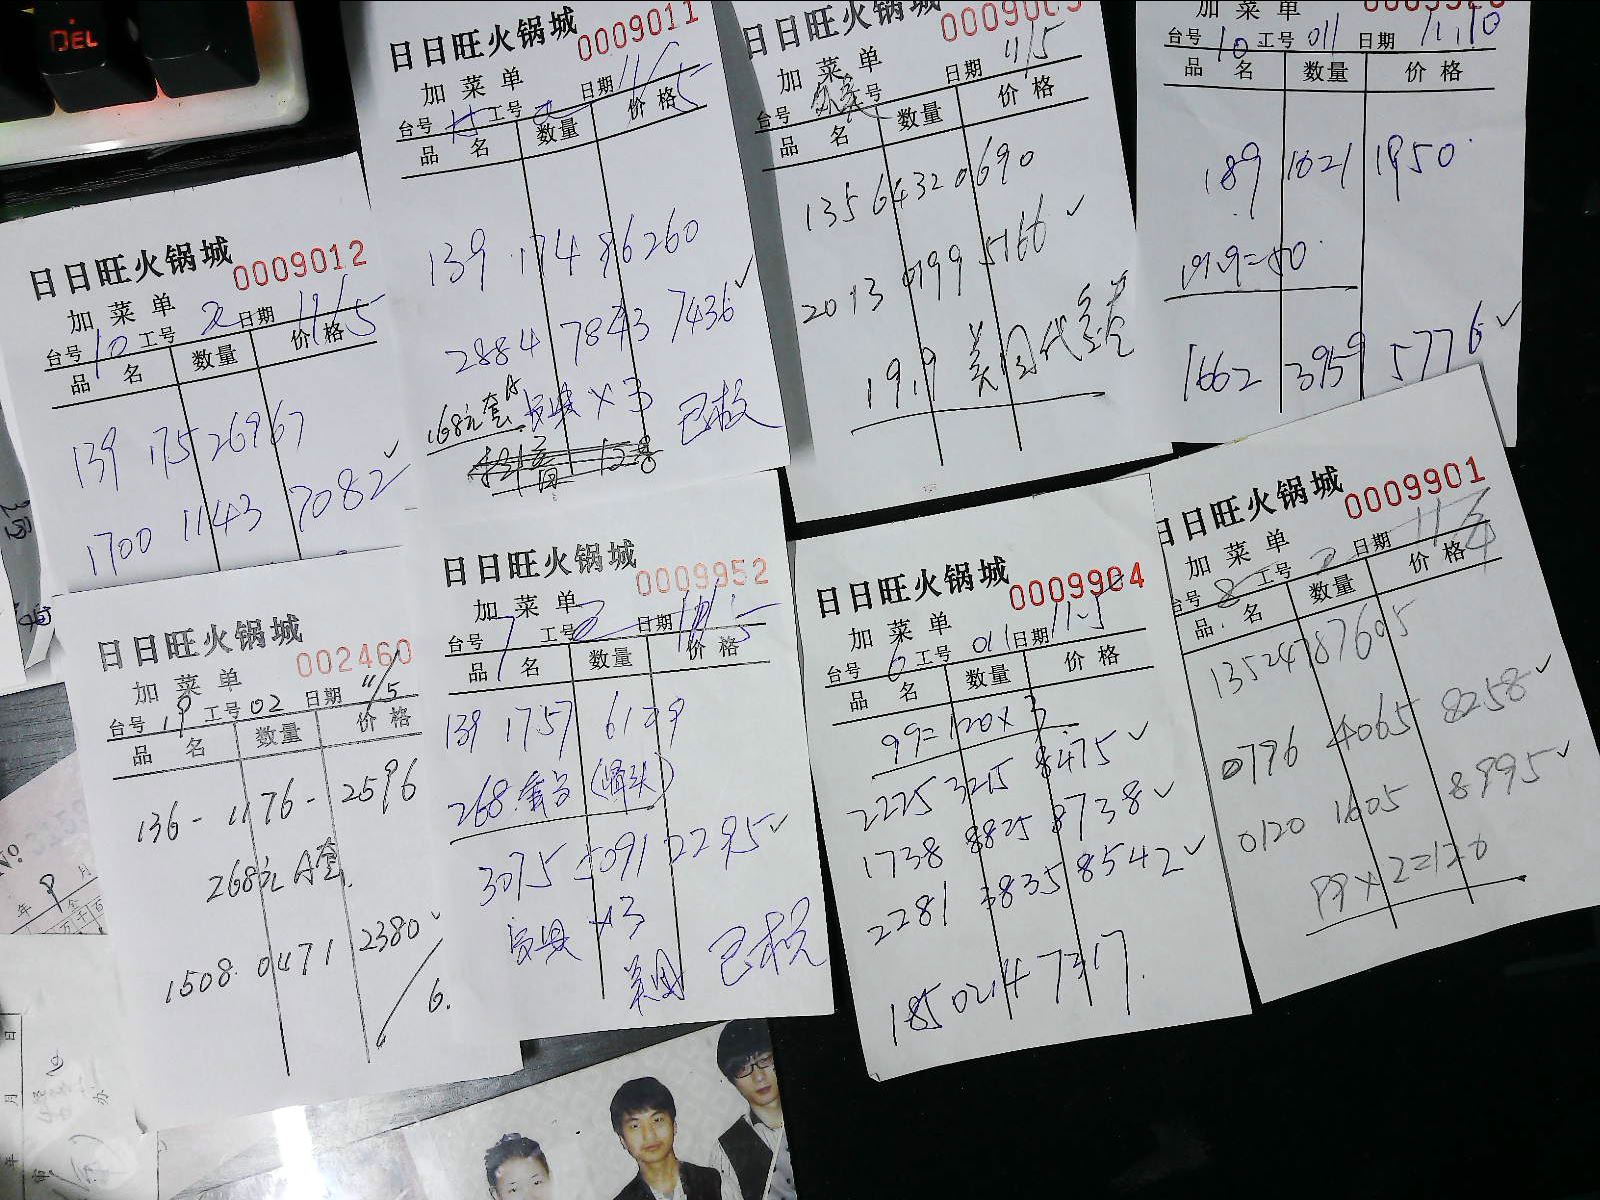 DEL
日日旺火锅城
0009012
加菜单
台号 10 工号 2 日期 11/5
品名 数量 价格
139 17526967
1700 1143 7082✓
日日旺火锅城
0009011
加菜单
台号 工号 2 日期 11/5
品名 数量 价格
139 174 86260
2884 7843 7436✓
168元套A ×3 已核
日日旺火锅城
加菜单
台号 工号 日期 11/5
品名 数量 价格
135 64320690
2013 0199 5166✓
19.9 美团代金券
加菜单
台号 10 工号 011 日期 11.10
品名 数量 价格
189 1621 1950
19.9=50
1662 3959 5776✓
日日旺火锅城
002460
加菜单
台号 19 工号 02 日期 11/5
品名 数量 价格
136-1176-2596
268元A套
1508 0471 2380✓
6.
日日旺火锅城
0009952
加菜单
台号 7 工号 2 日期
品名 数量 价格
139 1757 6129
268 套 (罐头)
3075 5091 2295✓
×3
美团 已核
日日旺火锅城
0009904
加菜单
台号 6 工号 011 日期 11-5
品名 数量 价格
99=120×3
2225 3215 8475✓
1738 8825 8738✓
2281 3835 8542✓
185 0214 7317
日日旺火锅城
0009901
加菜单
台号 8 工号 2 日期
品名 数量 价格
13524787605
0796 4065 8258✓
0120 1605 8995✓
99×2=120
No.
年 9 月